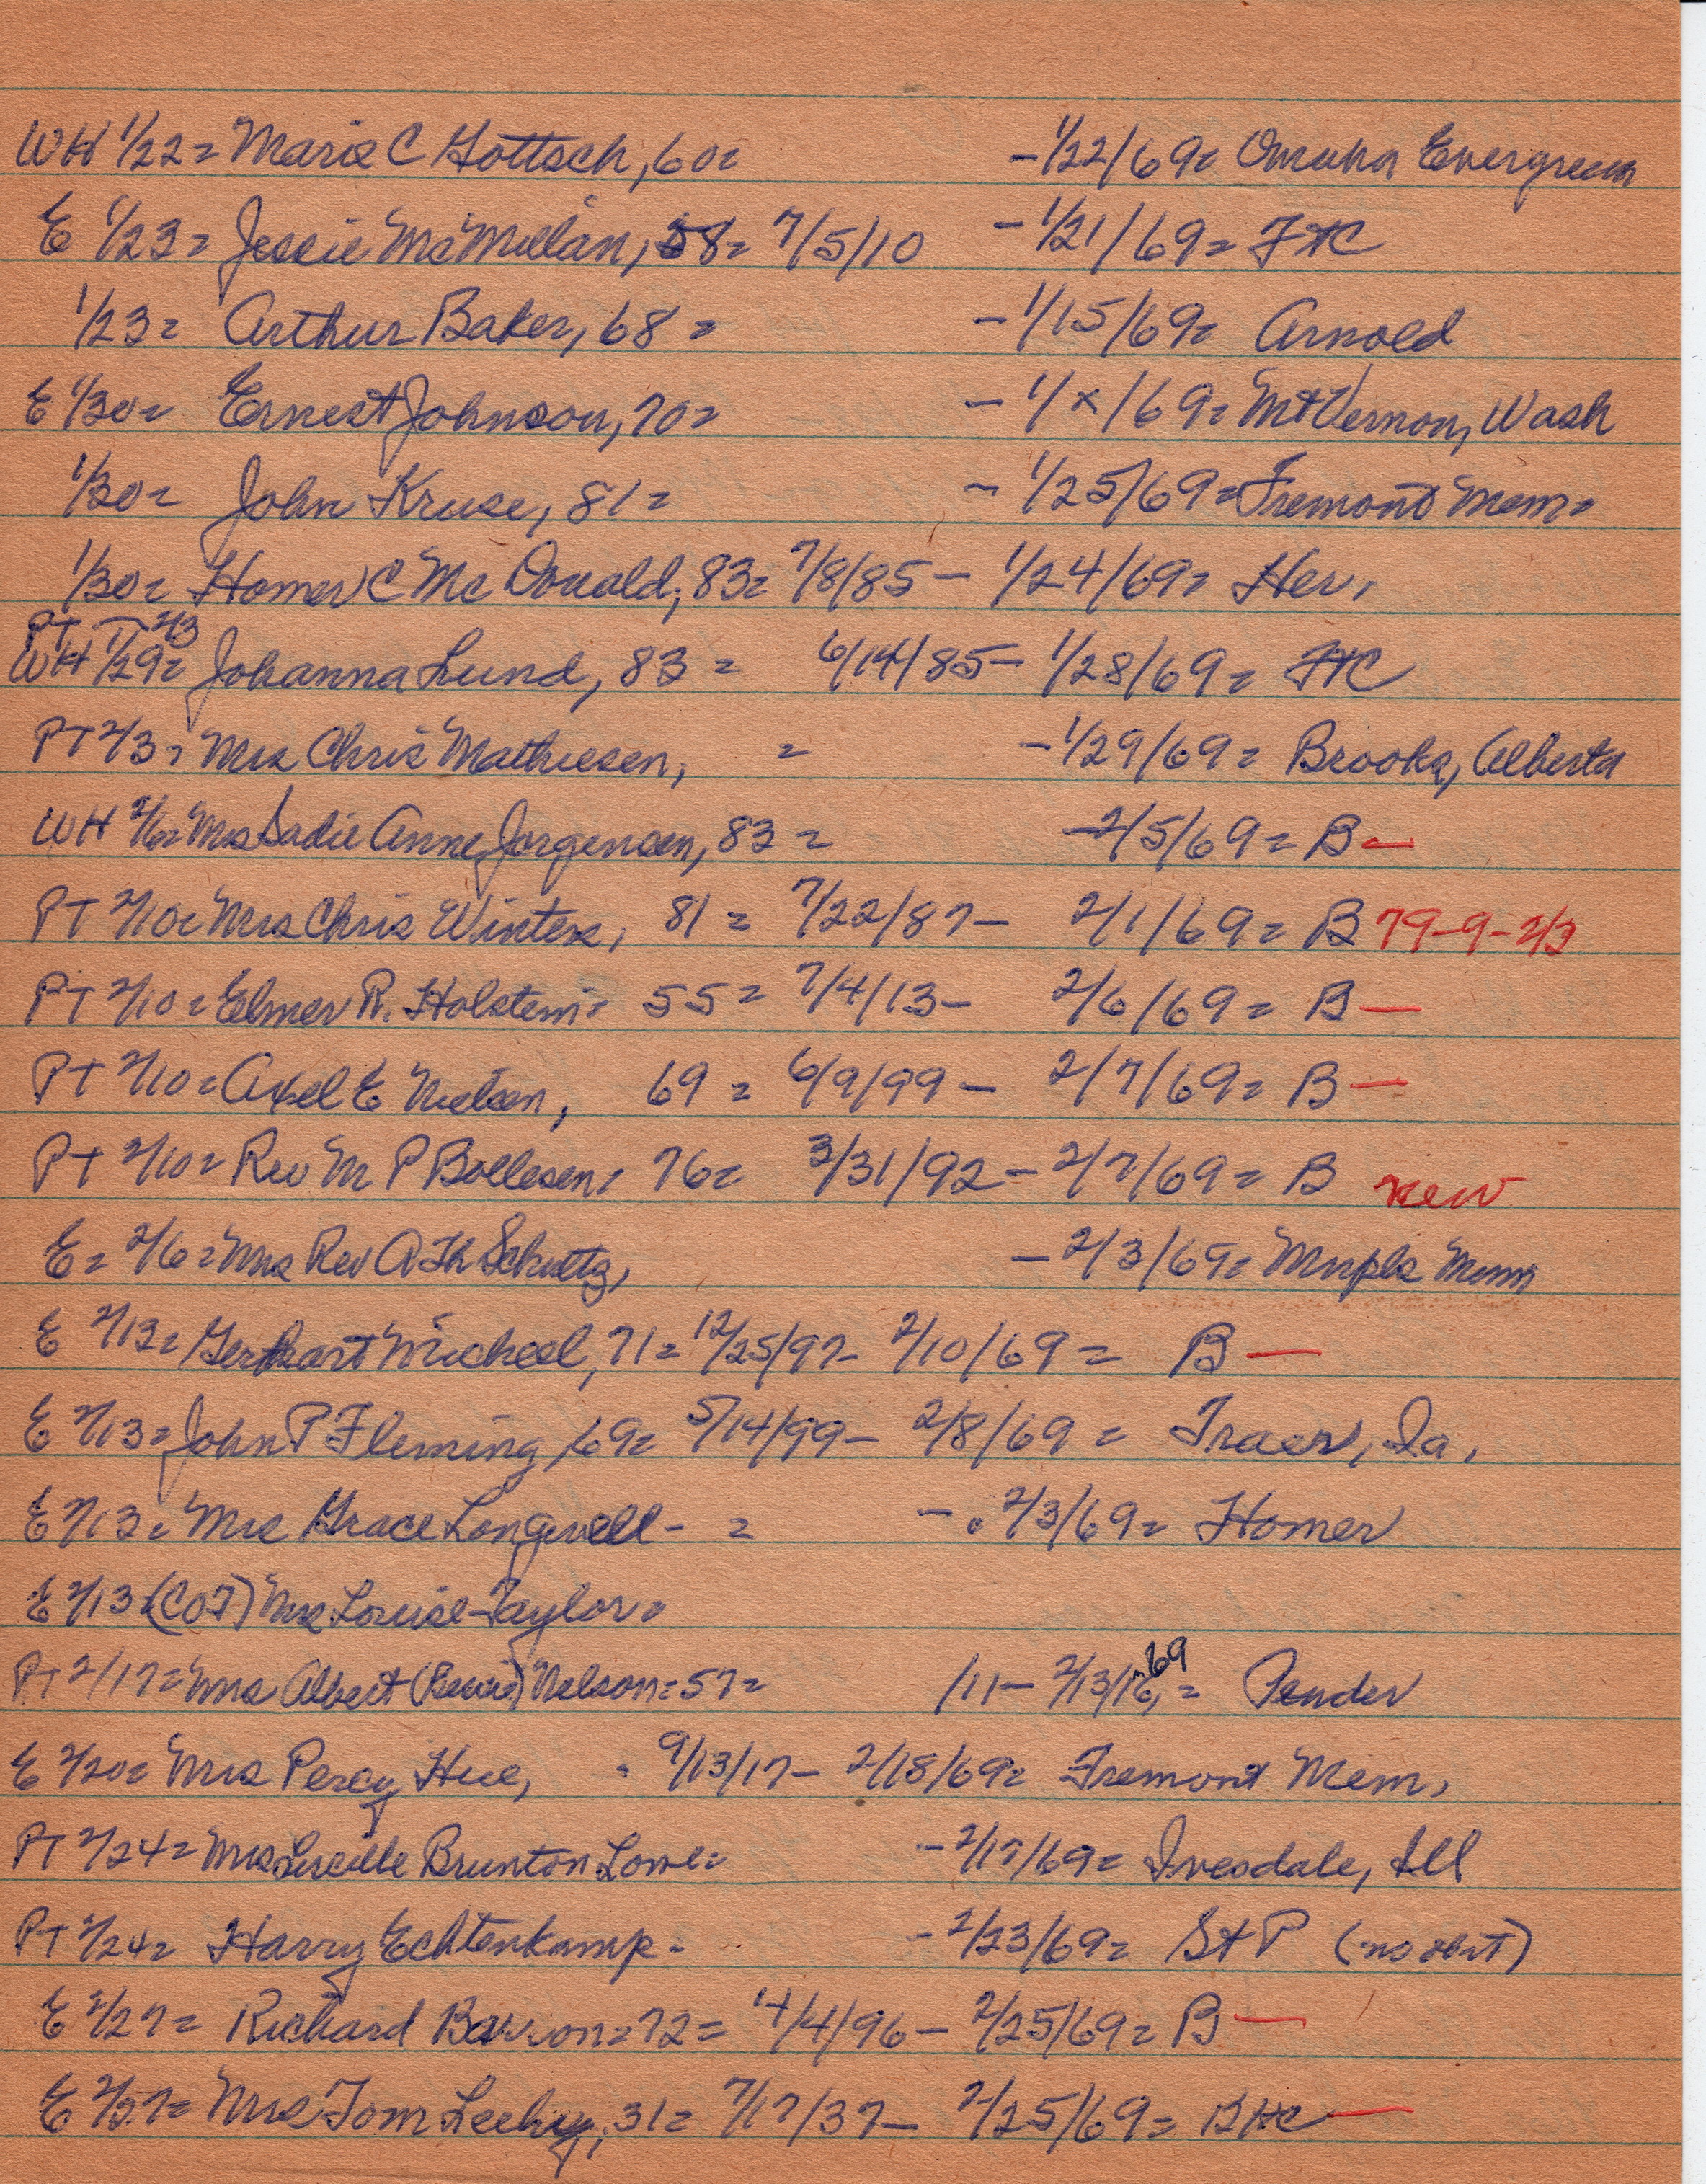 WH 1/22= Marie C Gottsch, 60= -1/22/69= Omaha Evergreen
E 1/23= Jessie McMillan, 58= 7/5/10 -1/21/69= FHC
1/23= Arthur Baker, 68= -1/15/69= Arnold
E 1/30= Ernest Johnson, 70= -1/x/69= Mt Vernon, Wash
1/30= John Kruse, 81= -1/25/69= Fremont Mem=
1/30= Homer C McDonald, 83= 7/8/85- 1/24/69= Her,
PT 2/3
WH 1/29= Johanna Lund, 83= 6/14/85- 1/28/69= FHC
PT 2/3= Mrs Chris Mathiesen, = -1/29/69= Brooks, Alberta
WH 2/6= Mrs Sadie Anne Jorgensen, 83= -2/5/69= B-
PT 2/10= Mrs Chris Winters, 81= 7/22/87- 2/1/69= B 79-9-2/3
PT 2/10= Elmer R. Holstein= 55= 7/4/13- 2/6/69= B-
PT 2/10= Axel E Nielsen, 69= 6/9/99- 2/7/69= B-
PT 2/10= Rev M P Bollesen, 76= 3/31/92- 2/7/69= B new
E= 2/6= Mrs Rev A Th Schultz, -2/3/69= Mnpls Minn
E 2/13= Gerhart Micheel, 71= 12/25/97- 2/10/69= B-
E 2/13= John P Fleming, 69= 5/14/99- 2/8/69= Traer, Ia,
E 2/13= Mrs Grace Longwell- = -. 2/3/69= Homer
E 2/13 (COT) Mrs Louise Taylor=
PT 2/17= Mrs Albert Nelson= 57= /11- 2/13/69= Pender
E 2/20= Mrs Percy Hue, - 9/13/17- 2/18/69= Fremont Mem,
PT 2/24= Mrs Lucille Brunton Lowe= -2/17/69= Ivesdale, Ill
PT 2/24= Harry Echtenkamp- -2/23/69= St P (no obit)
E 2/27= Richard Barron= 72= 4/4/96- 2/25/69= B-
E 2/27= Mrs Tom Leehy, 31= 7/17/37- 2/25/69= BHC-